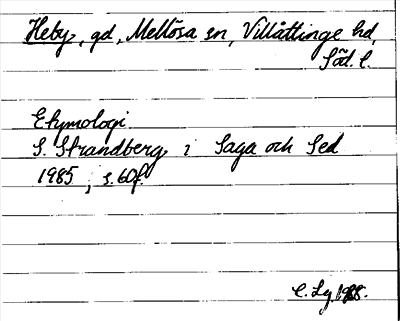 Heby, gd, Mellösa sn, Villåttinge hd,
Söd. l.
Etymologi.
S. Strandberg i Saga och Sed
1985, s. 60f.
C. Lg. 1988.